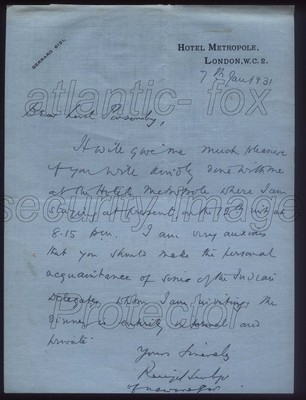 HOTEL METROPOLE,
LONDON, W.C. 2.
7th Jan 1931
Dear Lord Ponsonby,
It will give me much pleasure
if you will kindly dine with me
at the Hotel Metropole where I am
staying at present, on the
8-15 p.m. I am very anxious
that you should make the personal
acquaintance of some of the Indian
Delegates whom I am inviting. The
dinner is entirely informal and
private.
Yours Sincerely
of Nawanagar
atlantic-fox
security image
Protector